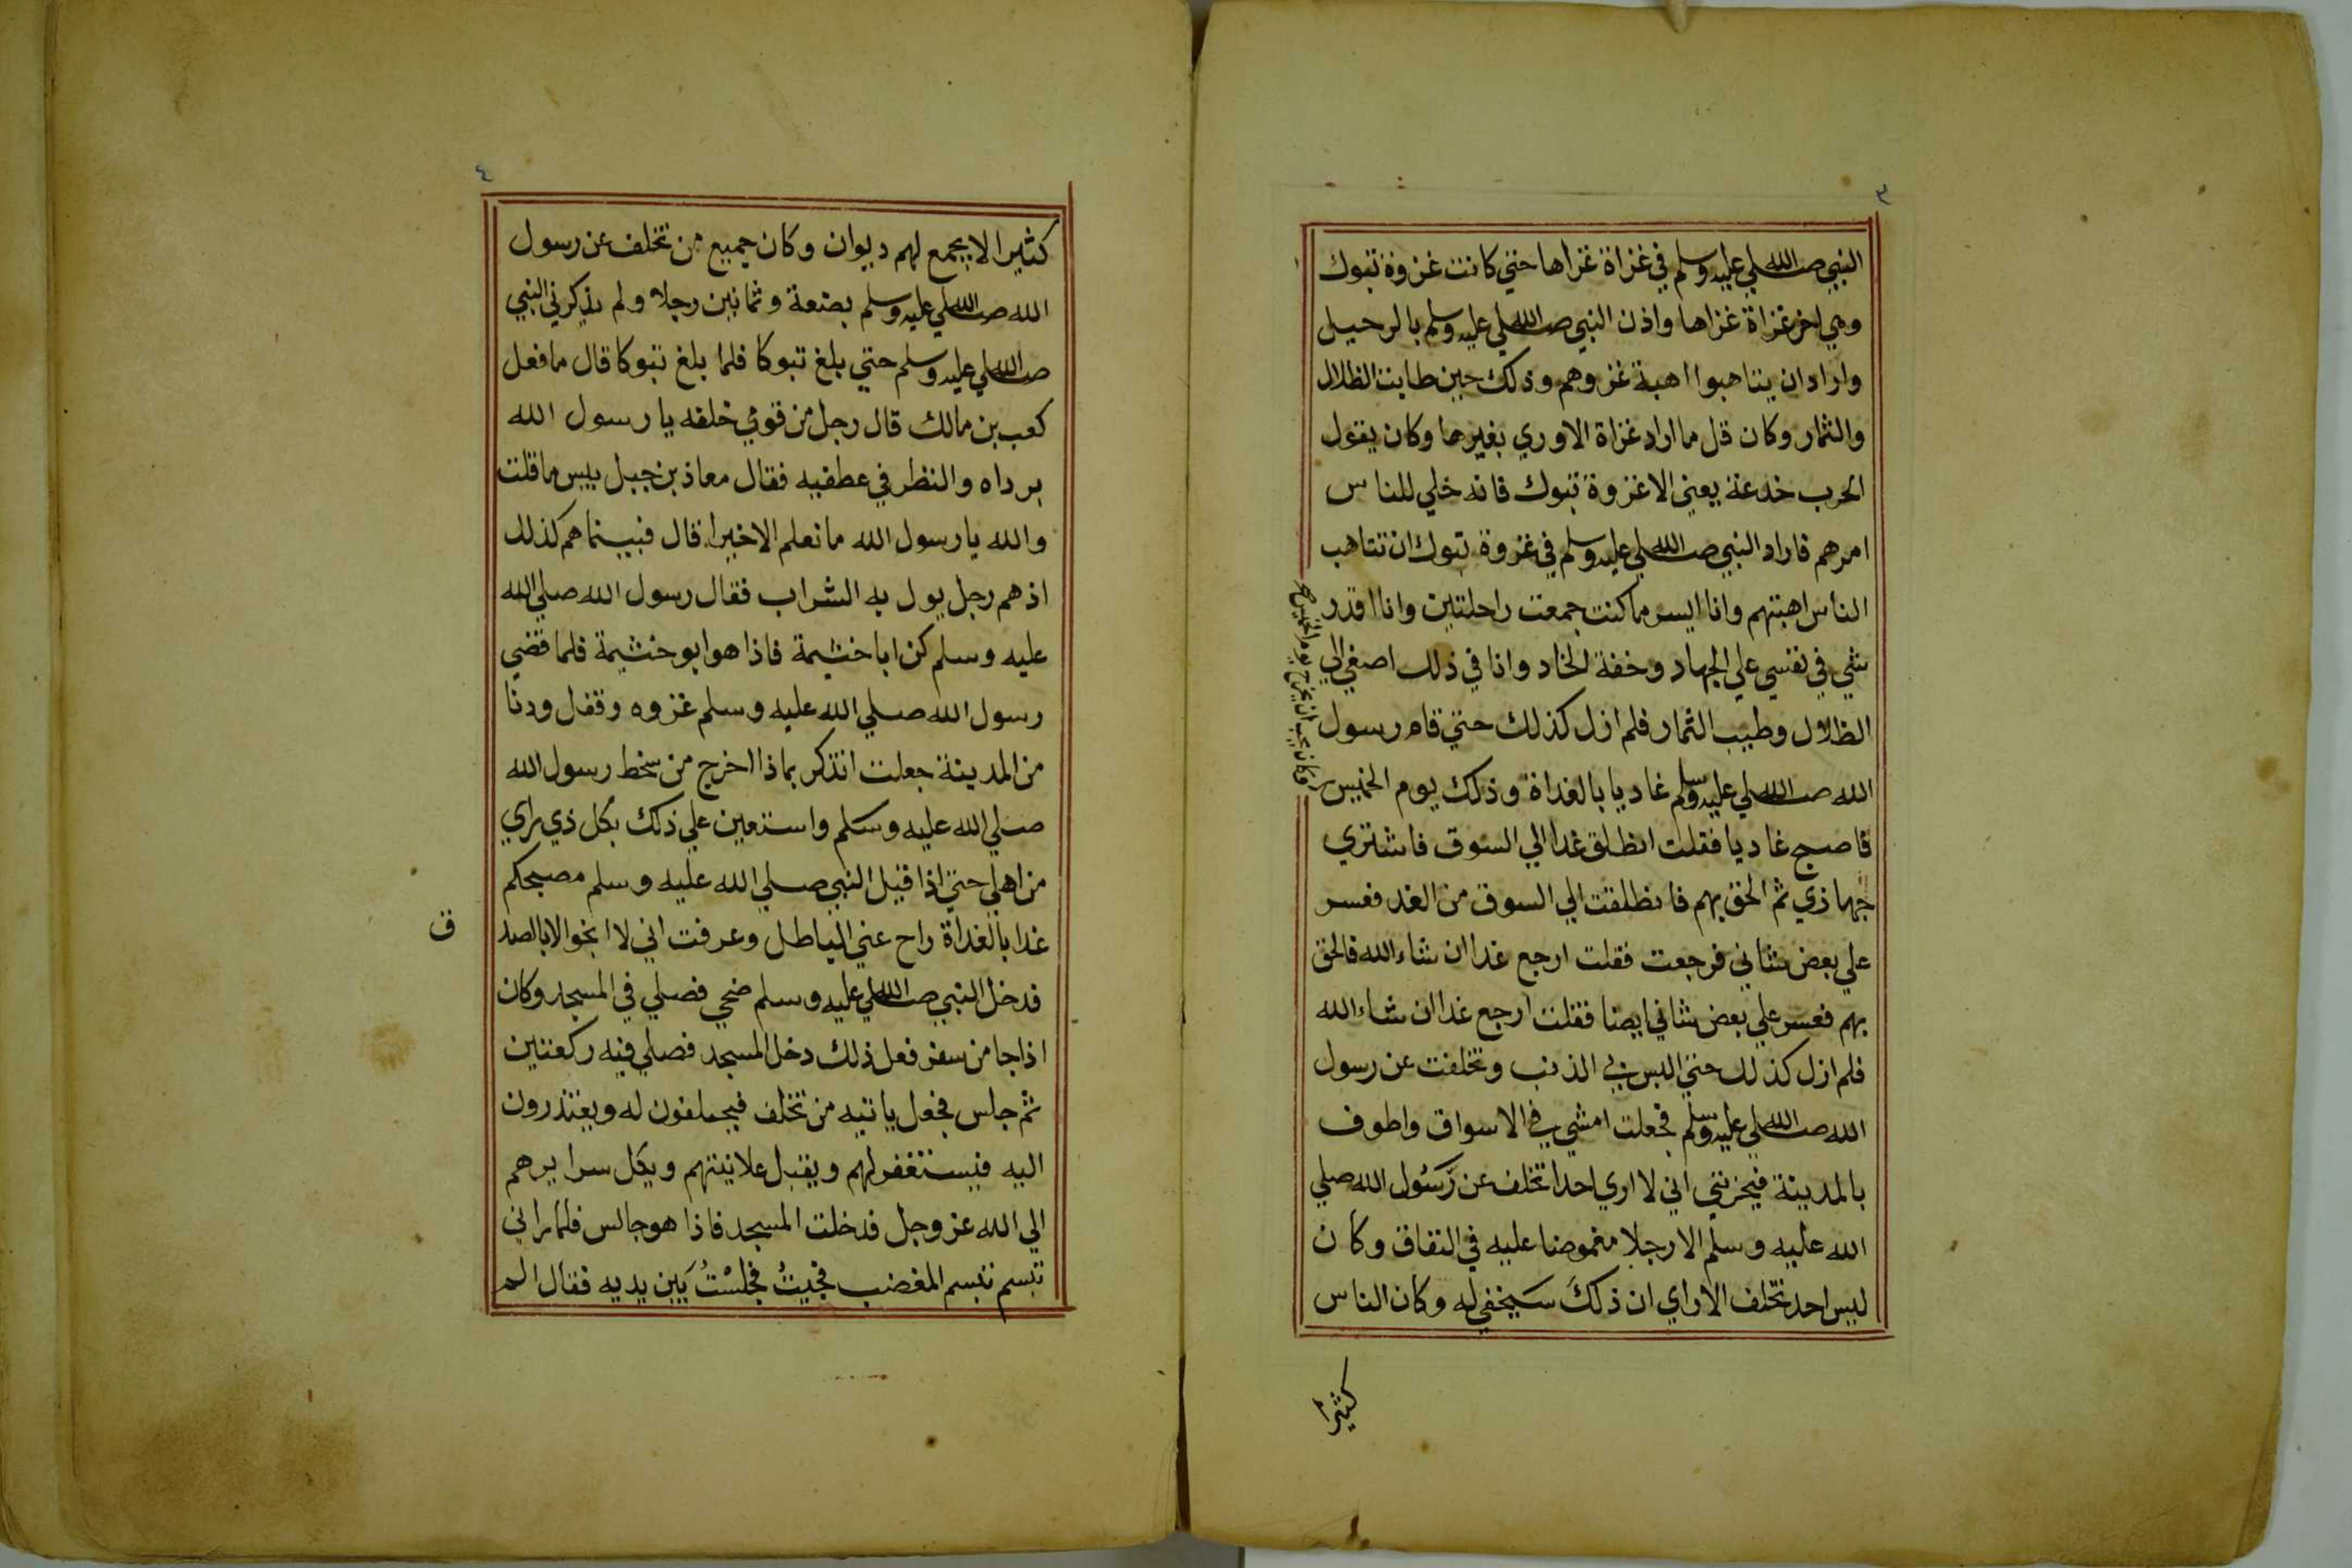 ٣
النبي صلي الله عليه وسلم في غزاة غزاها حتي كانت غزوة تبوك
وهي اخر غزاة غزاها واذن النبي صلي الله عليه وسلم بالرحيل
واراد ان يتاهبوا اهبة غزوهم وذلك حين طابت الظلال
والثمار وكان قل ما اراد غزاة الا وري بغيرها وكان يقول
الحرب خدعة يعني الا غزوة تبوك فانه خلي للناس
امرهم فاراد النبي صلي الله عليه وسلم في غزوة تبوك ان تتاهب
الناس اهبتهم وانا ايسر ما كنت جمعت راحلتين وانا اقدر
شي في نفسي علي الجهاد وخفة الحاد وانا في ذلك اصغي الي
الظلال وطيب الثمار فلم ازل كذلك حتي قام رسول
الله صلي الله عليه وسلم غاديا بالغداة وذلك يوم الخميس
وكان يحب ان يخرج يوم الخميس صح
فاصبح غاديا فقلت انطلق غدا الي السوق فاشتري
جهازي ثم الحق بهم فانطلقت الي السوق من الغد فعسر
علي بعض شاني فرجعت فقلت ارجع غدا ان شاء الله فالحق
بهم فعسر علي بعض شاني ايضا فقلت ارجع غدا ان شاء الله
فلم ازل كذلك حتي البس بي الذنب وتخلفت عن رسول
الله صلي الله عليه وسلم فجعلت امشي في الاسواق واطوف
بالمدينة فيحزنني اني لا اري احدا تخلف عن رسول الله صلي
الله عليه وسلم الا رجلا مغموضا عليه في النفاق وكان
ليس احد تخلف الا راي ان ذلك سيخفي له وكان الناس
كثيرا
٤
كثيرا لا يجمع لهم ديوان وكان جميع من تخلف عن رسول
الله صلي الله عليه وسلم بضعة وثمانين رجلا ولم يذكرني النبي
صلي الله عليه وسلم حتي بلغ تبوكا فلما بلغ تبوكا قال ما فعل
كعب بن مالك قال رجل من قومي خلفه يا رسول الله
برداه والنظر في عطفيه فقال معاذ بن جبل بيس ما قلت
والله يا رسول الله ما نعلم الا خيرا قال فبينما هم كذلك
اذ هم رجل يول به الشراب فقال رسول الله صلي الله
عليه وسلم كن ابا خثيمة فاذا هو ابو خثيمة فلما قضي
رسول الله صلي الله عليه وسلم غزوه وقفل ودنا
من المدينة جعلت اتذكر بماذا اخرج من سخط رسول الله
صلي الله عليه وسلم واستعين علي ذلك بكل ذي راي
من اهلي حتي اذا قيل النبي صلي الله عليه وسلم مصبحكم
غدا بالغداة راح عني الباطل وعرفت اني لا انجوا الا بالصد
ق
فدخل النبي صلي الله عليه وسلم ضحي فصلي في المسجد وكان
اذا جا من سفر فعل ذلك دخل المسجد فصلي فيه ركعتين
ثم جلس فجعل ياتيه من تخلف فيحلفون له ويعتذرون
اليه فيستغفر لهم ويقبل علانيتهم ويكل سرايرهم
الي الله عز وجل فدخلت المسجد فاذا هو جالس فلما راني
تبسم تبسم المغضب فجيتُ فجلسْتُ بَين يديه فقال الم